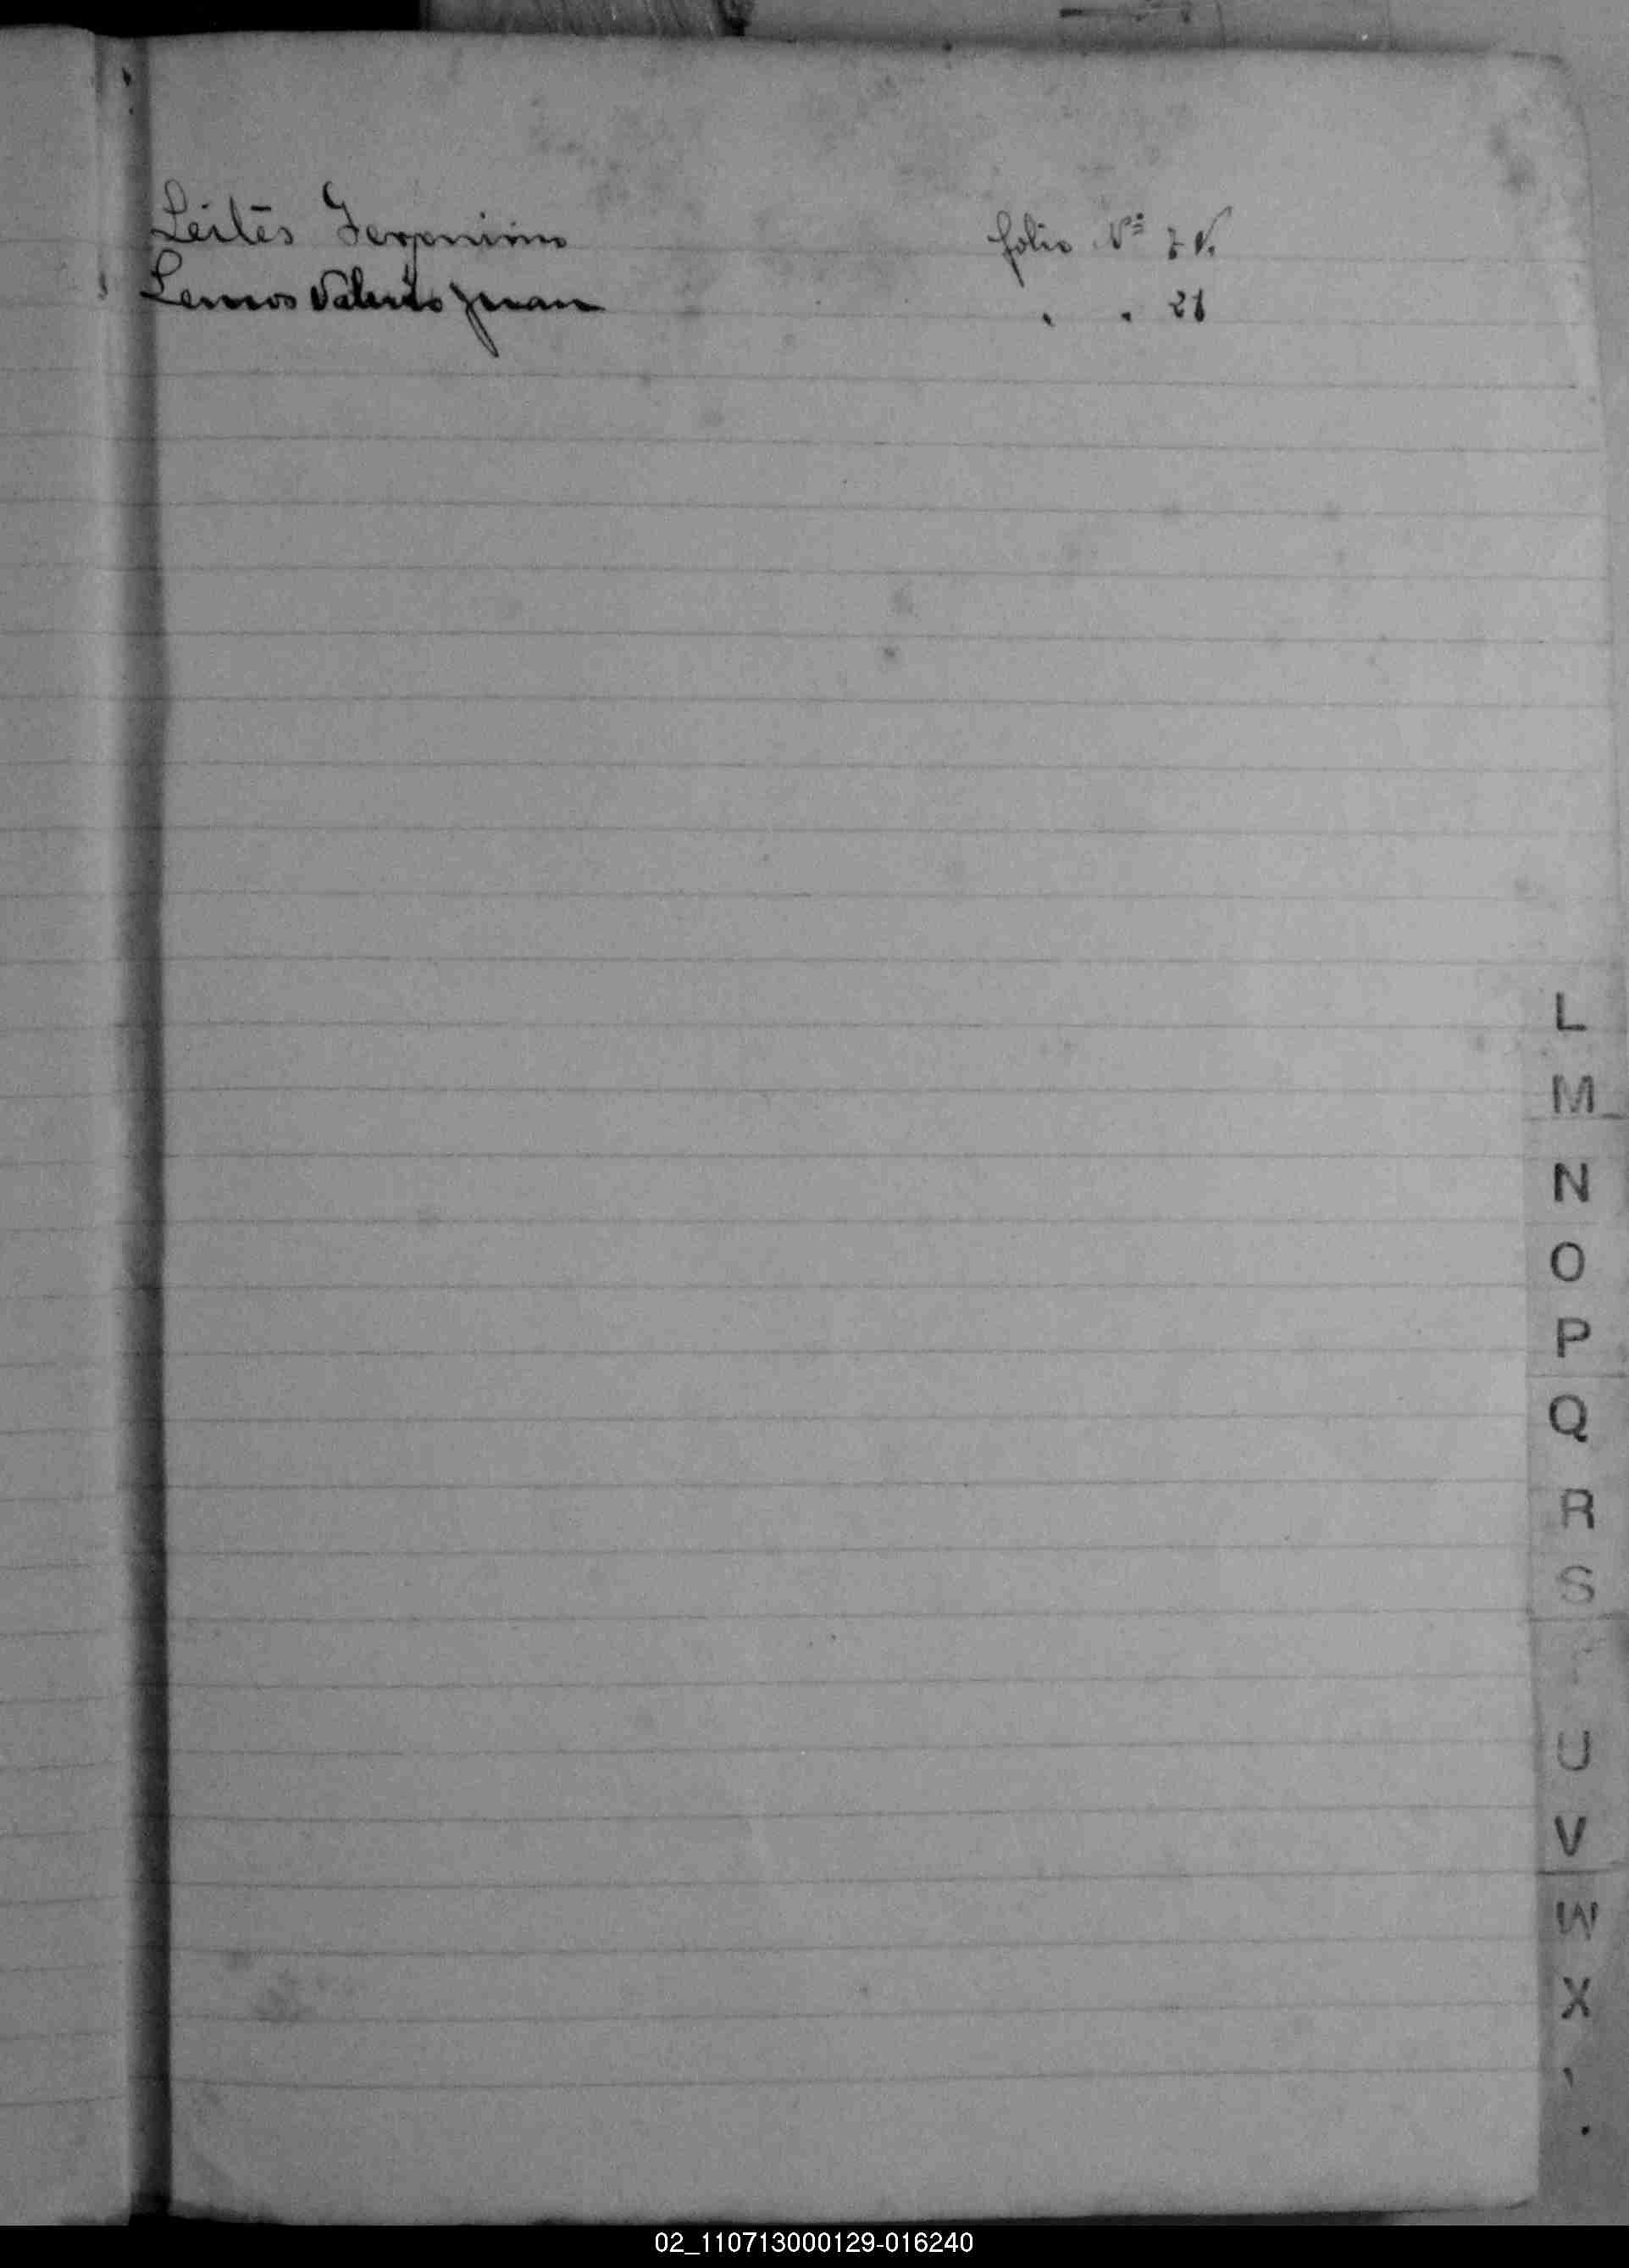 Leites Jeronimo folio Nº 7 V.
Lemos Valerio Juan " " 26
L
M
N
O
P
Q
R
S
U
V
W
X
02_110713000129-016240